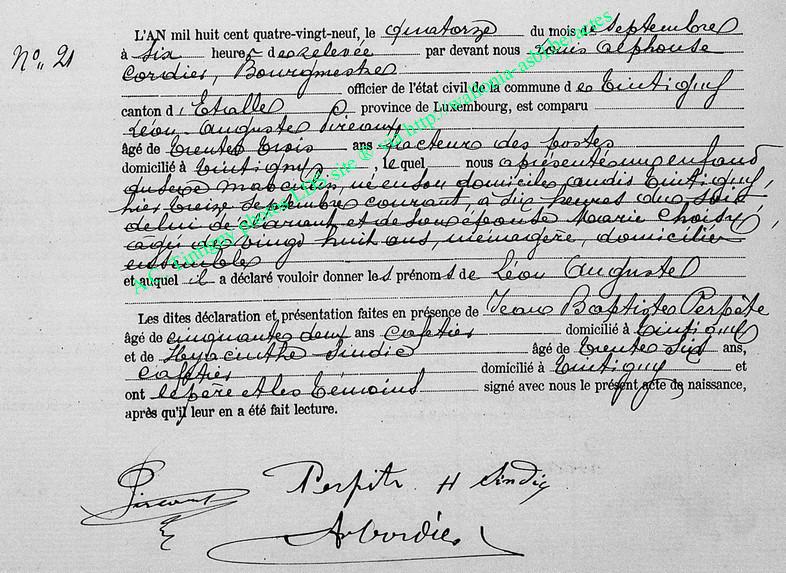 No. 21
L'AN mil huit cent quatre-vingt-neuf, le quatorze du mois de Septembre
à Six heures de relevée par devant nous Louis Alphonse
Cordier, Bourgmestre
officier de l'état civil de la commune de Tintigny
canton d'Etalle province de Luxembourg, est comparu
Léon Auguste Pireaux
âgé de trente trois ans facteur des postes
domicilié à Tintigny, lequel nous a présenté un enfant
du sexe masculin, né en son domicile audit Tintigny,
hier treize Septembre courant, à dix heures du soir
de lui déclarant et de son épouse Marie Choisy,
âgée de vingt huit ans, ménagère, domiciliée
ensemble
et auquel il a déclaré vouloir donner les prénoms de Léon Auguste
Les dites déclaration et présentation faites en présence de Jean Baptiste Perpète
âgé de cinquante deux ans cafetier domicilié à Tintigny
et de Hyacinthe Sindic âgé de trente Six ans,
Cafetier domicilié à Tintigny et
ont le père et les témoins signé avec nous le présent acte de naissance,
après qu'il leur en a été fait lecture.
Perpète H Sindic
A Cordier